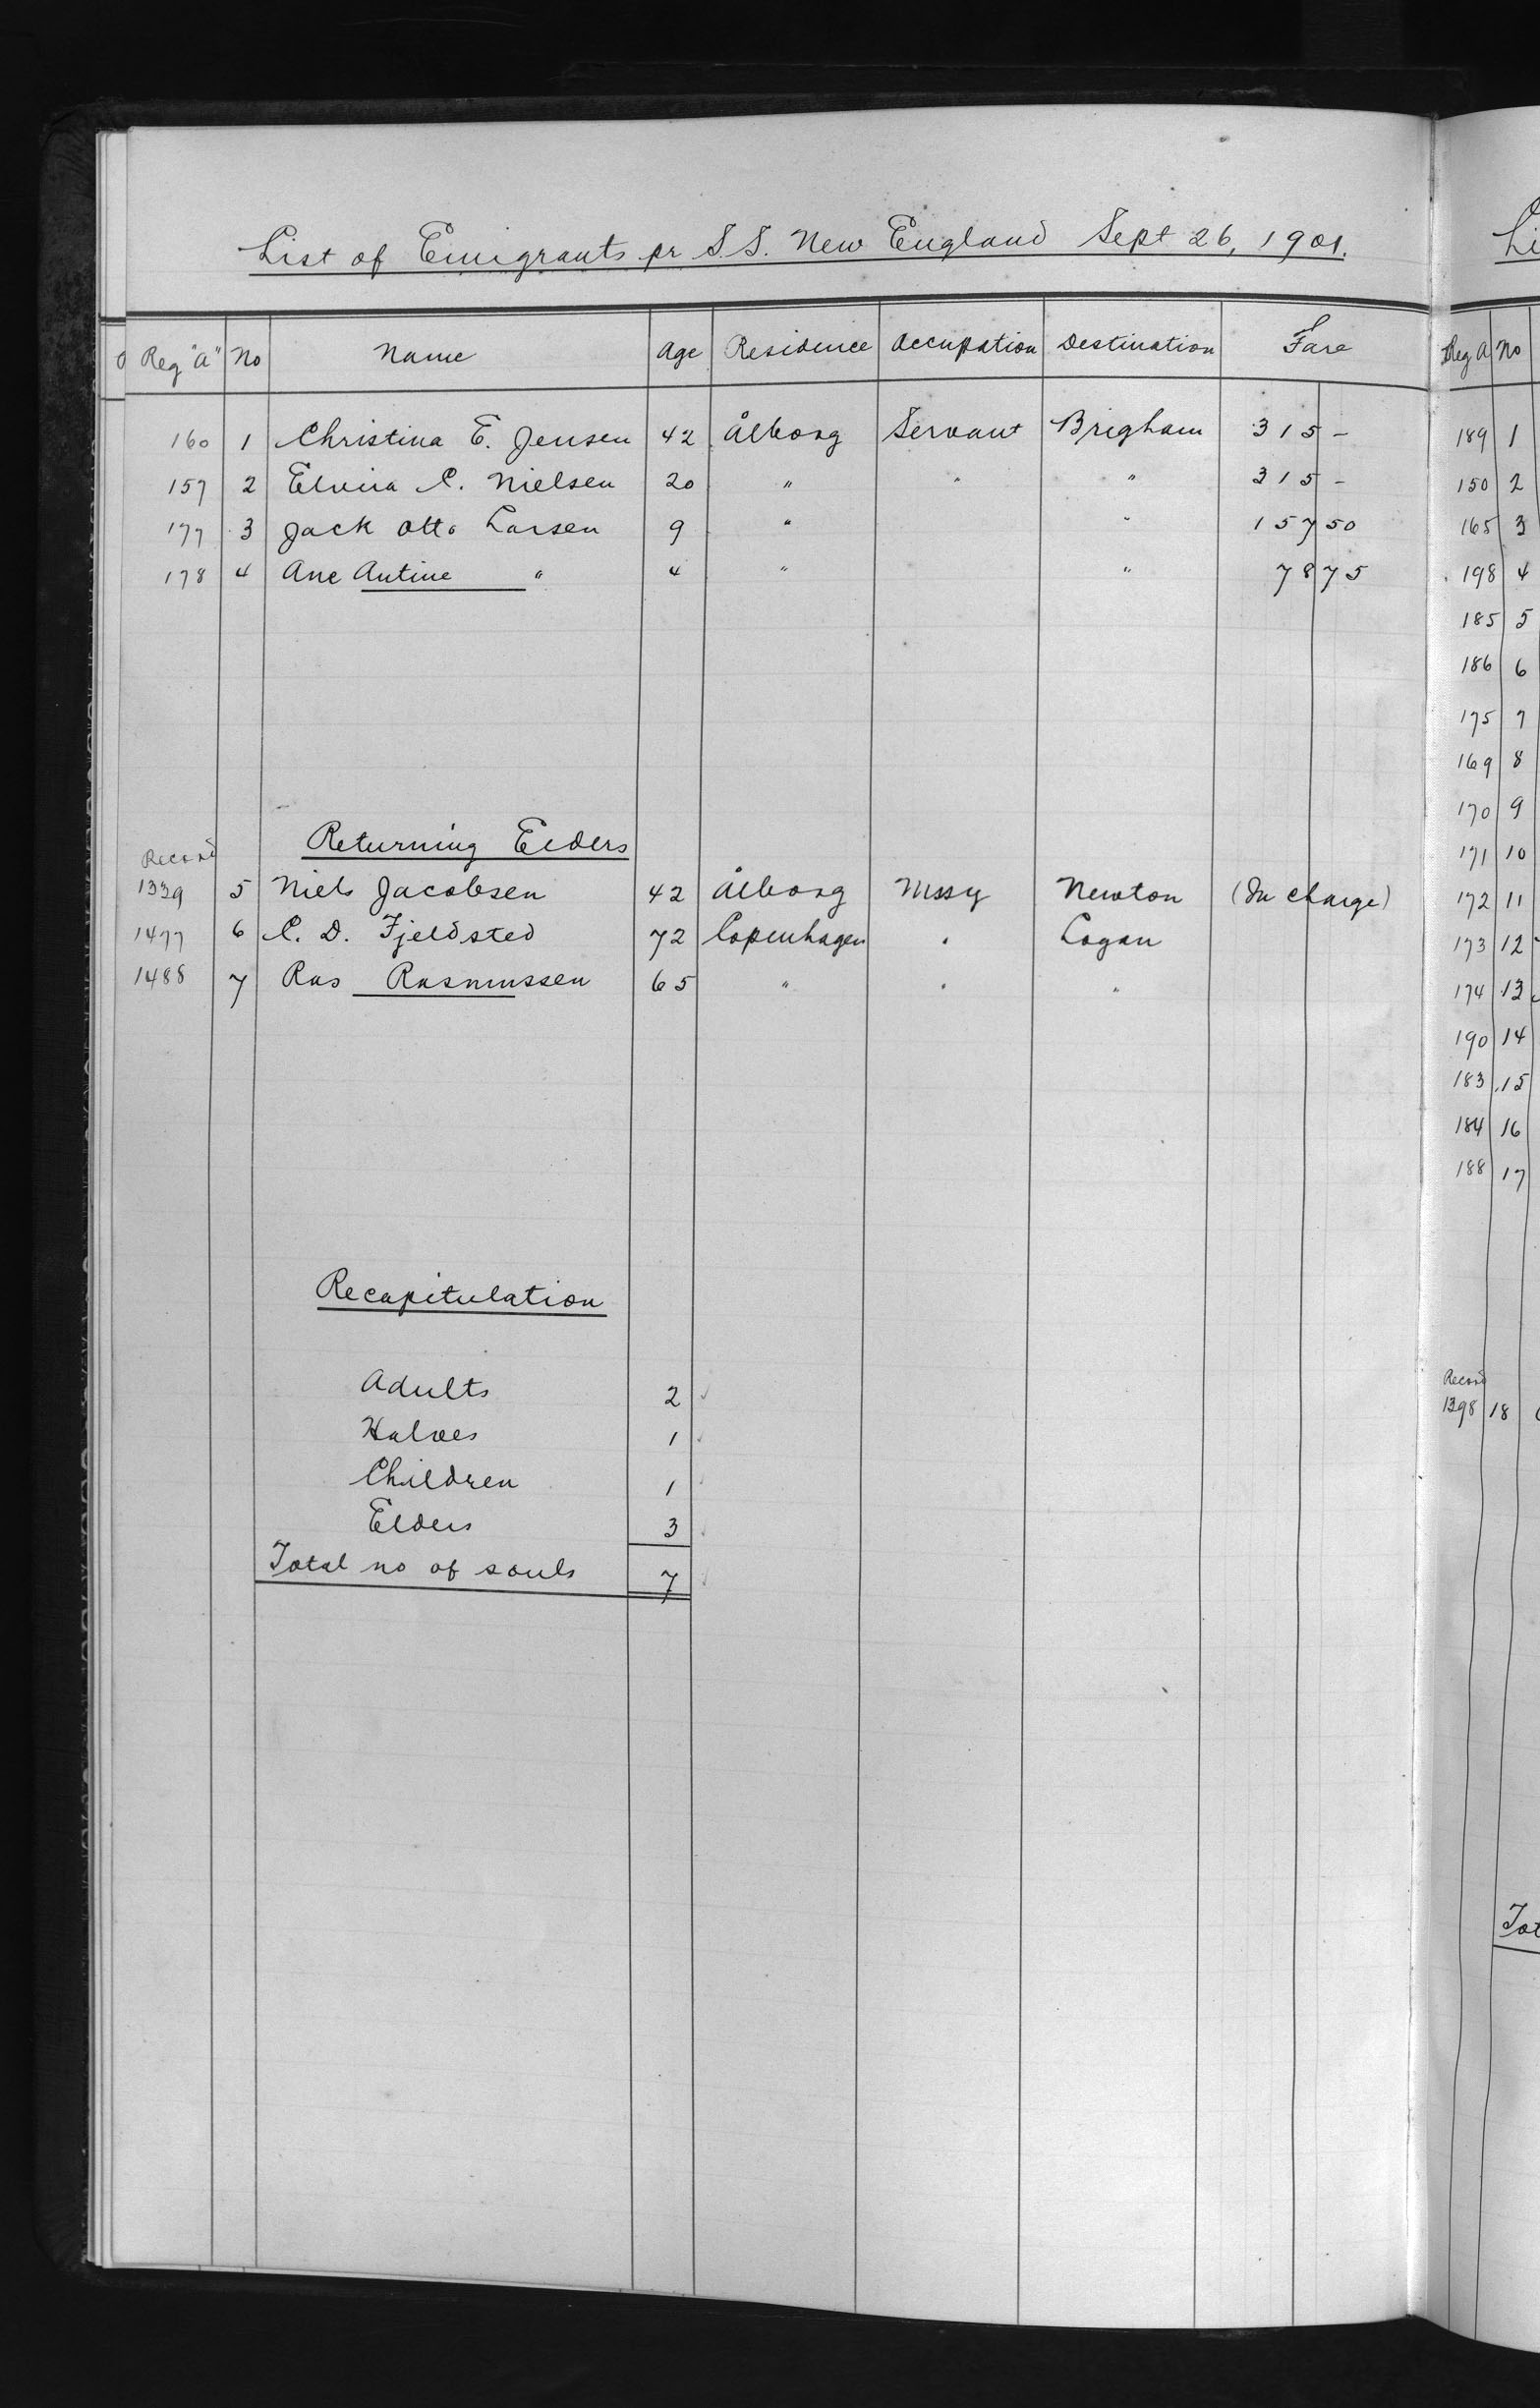 List of Emigrants pr S.S. New England Sept 26, 1901.
Reg "A" No Name Age Residence Occupation Destination Fare
160 1 Christina E. Jensen 42 Ålborg Servant Brigham 315 -
157 2 Elvira C. Nielsen 20 " " " 315 -
177 3 Jack Otto Larsen 9 " " 157 50
178 4 Ane Antine " 4 " " 78 75
Returning Elders
Record
1339 5 Niels Jacobsen 42 Ålborg Mssy Newton (In charge)
1477 6 C. D. Fjeldsted 72 Copenhagen " Logan
1488 7 Ras Rasmussen 65 " " "
Recapitulation
Adults 2
Halves 1
Children 1
Elders 3
Total no of souls 7
Li
Reg A No
189 1
150 2
165 3
198 4
185 5
186 6
175 7
169 8
170 9
171 10
172 11
173 12
174 13
190 14
183 15
184 16
188 17
Record
1398 18
Tot